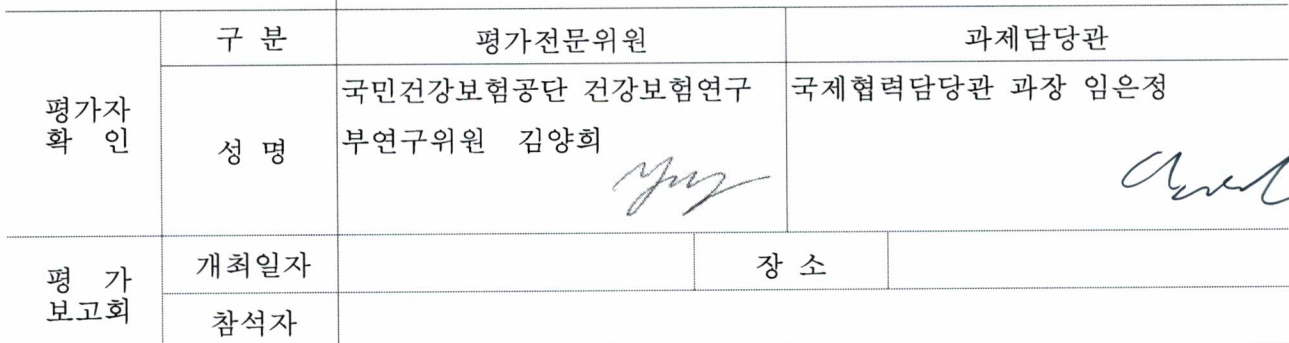 구 분 평가전문위원 과제담당관
평가자
확 인
성 명
국민건강보험공단 건강보험연구
부연구위원 김양희
국제협력담당관 과장 임은정
평 가
보고회
개최일자 장 소
참석자